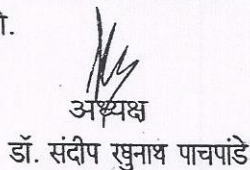 ो.
अध्यक्ष
डॉ. संदीप रघुनाथ पाचपांडे